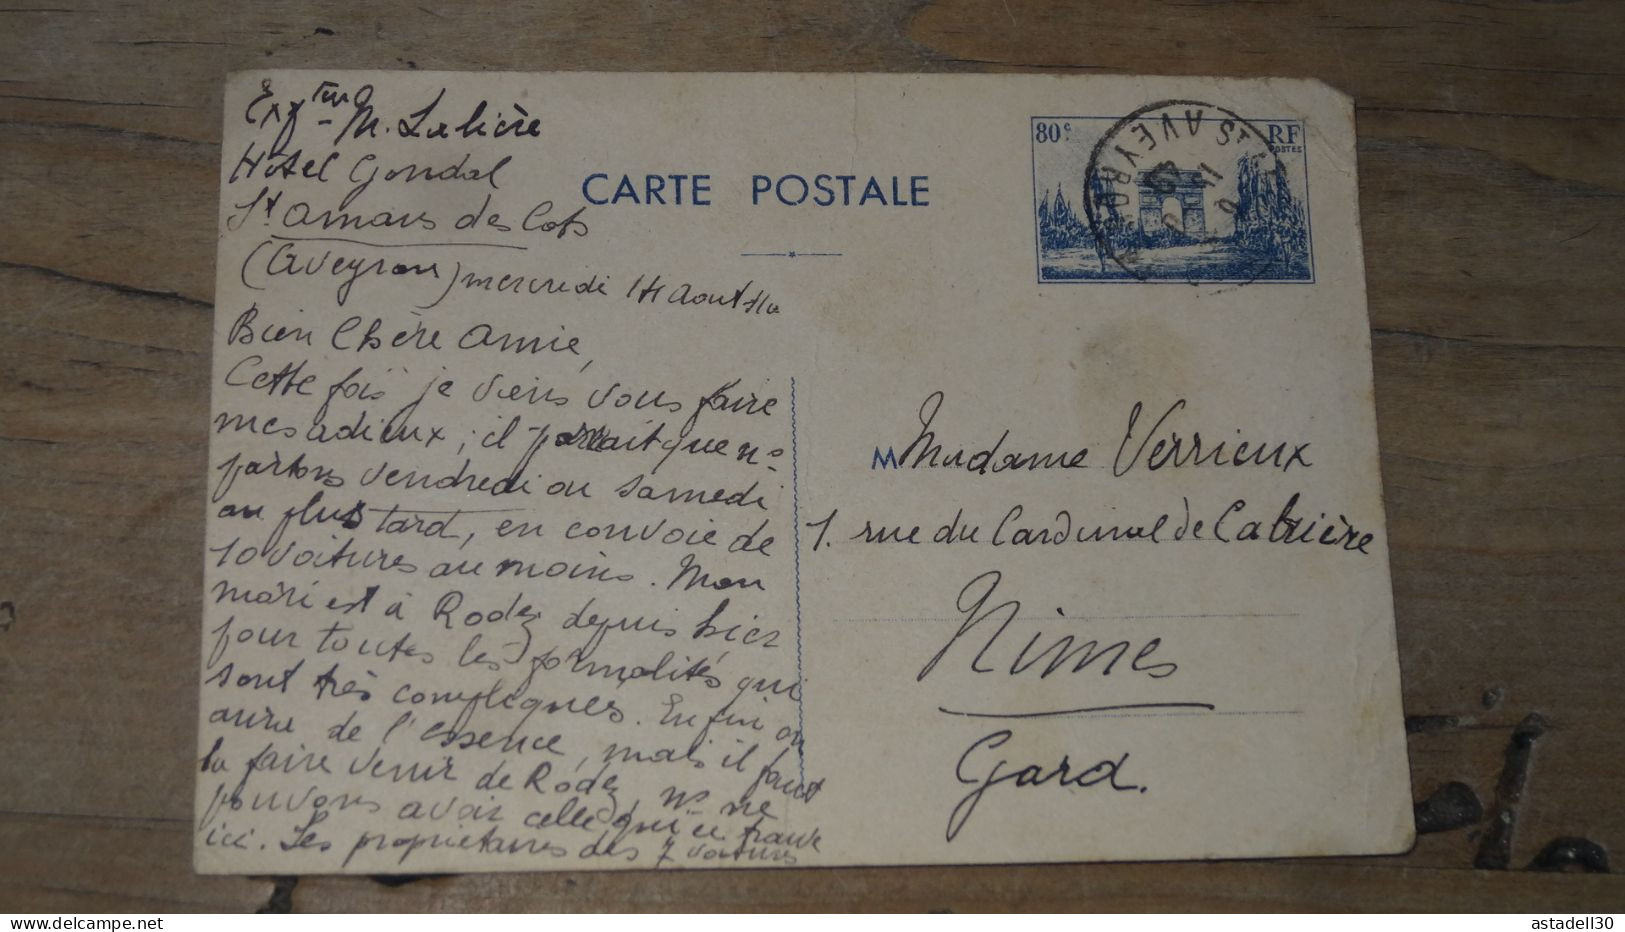 M. Lalière
Hôtel Gondal
St Amans des Cots
(Aveyron) mercredi 14 Aout 40
Bien Chère Amie,
Cette fois je viens vous faire
mes adieux ; il parait que ns
partons vendredi ou samedi
au plus tard, en convoie de
10 voitures au moins. Mon
mari est à Rodez depuis hier
pour toutes les formalités qui
sont très compliquées. Enfin on
aura de l'essence, mais il faut
la faire venir de Rodez ns ne
pouvons avoir celle qui se trouve
ici. Les propriétaires des 7 voitures
CARTE POSTALE
80c
RF
POSTES
AVEYRON
M Madame Verrieux
1. rue du Cardinal de Cabrière
Nimes
Gard.
delcampe.net
astadell30